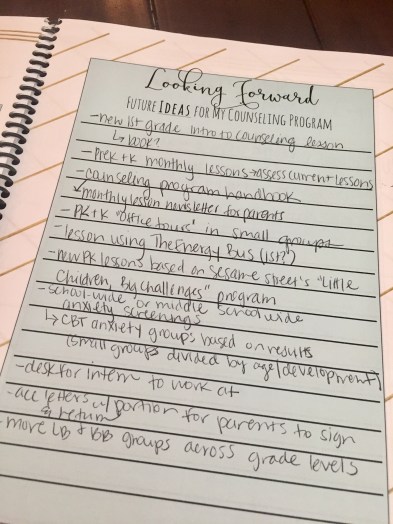 Looking Forward
FUTURE IDEAS FOR MY COUNSELING PROGRAM
-new 1st grade intro to counseling lesson
↳ book?
-PreK + K monthly lessons → assess current lessons
-counseling program handbook
↙monthly lesson newsletter for parents
-PK + K "office tours" in small groups
-lesson using The Energy Bus (1st?)
-new PK lessons based on Sesame Street's "Little
Children, Big Challenges" program
-school-wide, or middle school wide
anxiety screenings
↳ CBT anxiety groups based on results
(small groups divided by age/development)
-desk for intern to work at
-acc letters w/ portion for parents to sign
& return
-more LB + BB groups across grade levels